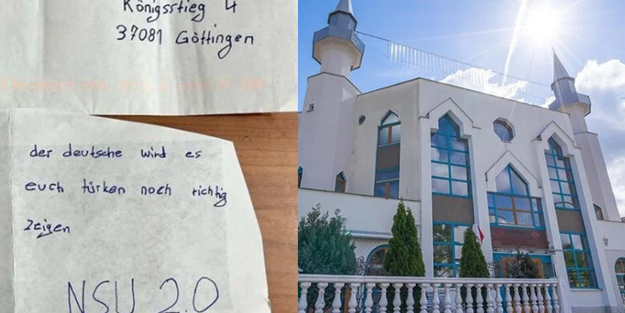 Königsstieg 4
37081 Göttingen
der deutsche wird es
euch türken noch richtig
zeigen
NSU 2.0